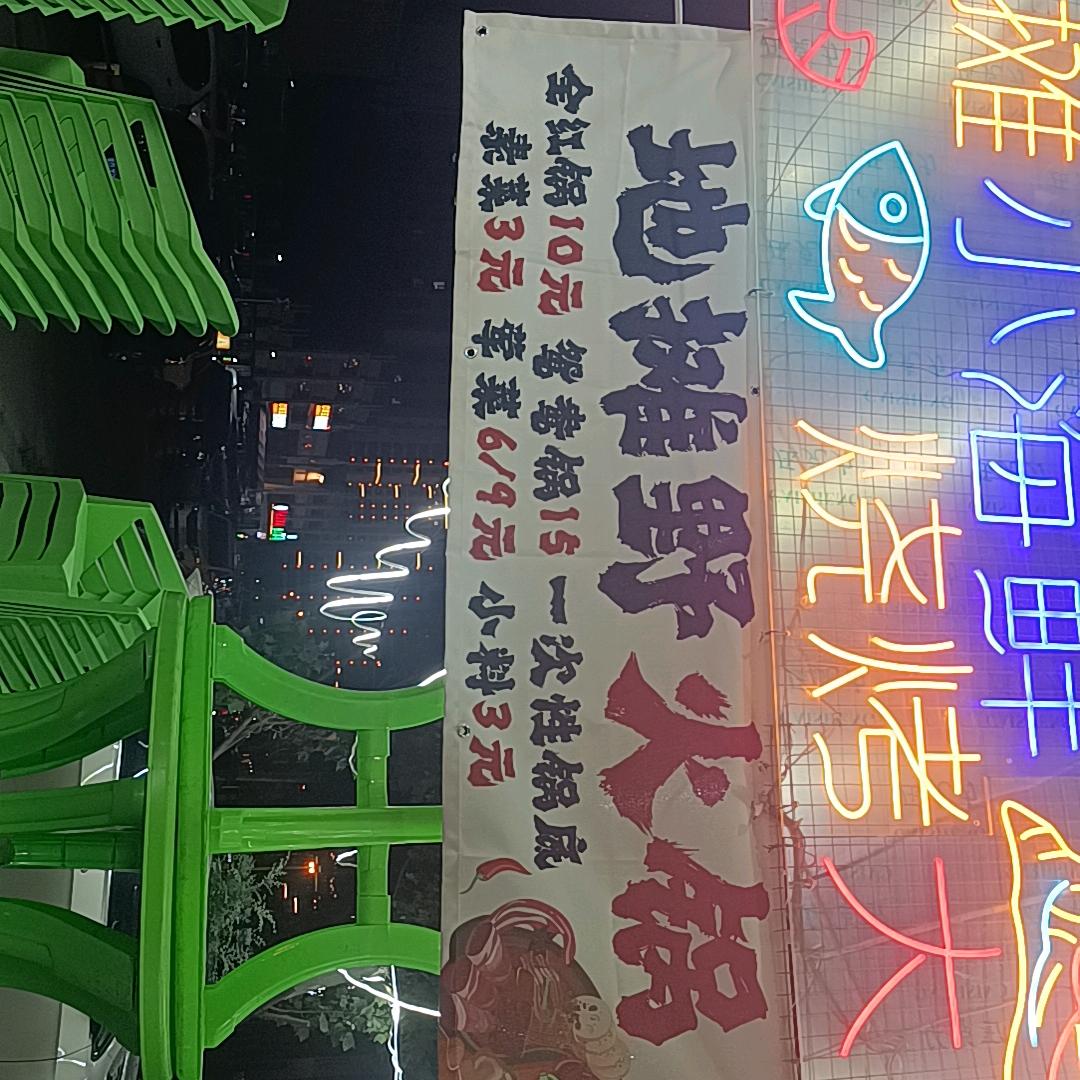 摊小海鲜
烧烤大
地摊野火锅
全红锅10元 鸳鸯锅15 一次性锅底
素菜3元 荤菜6/9元 小料3元